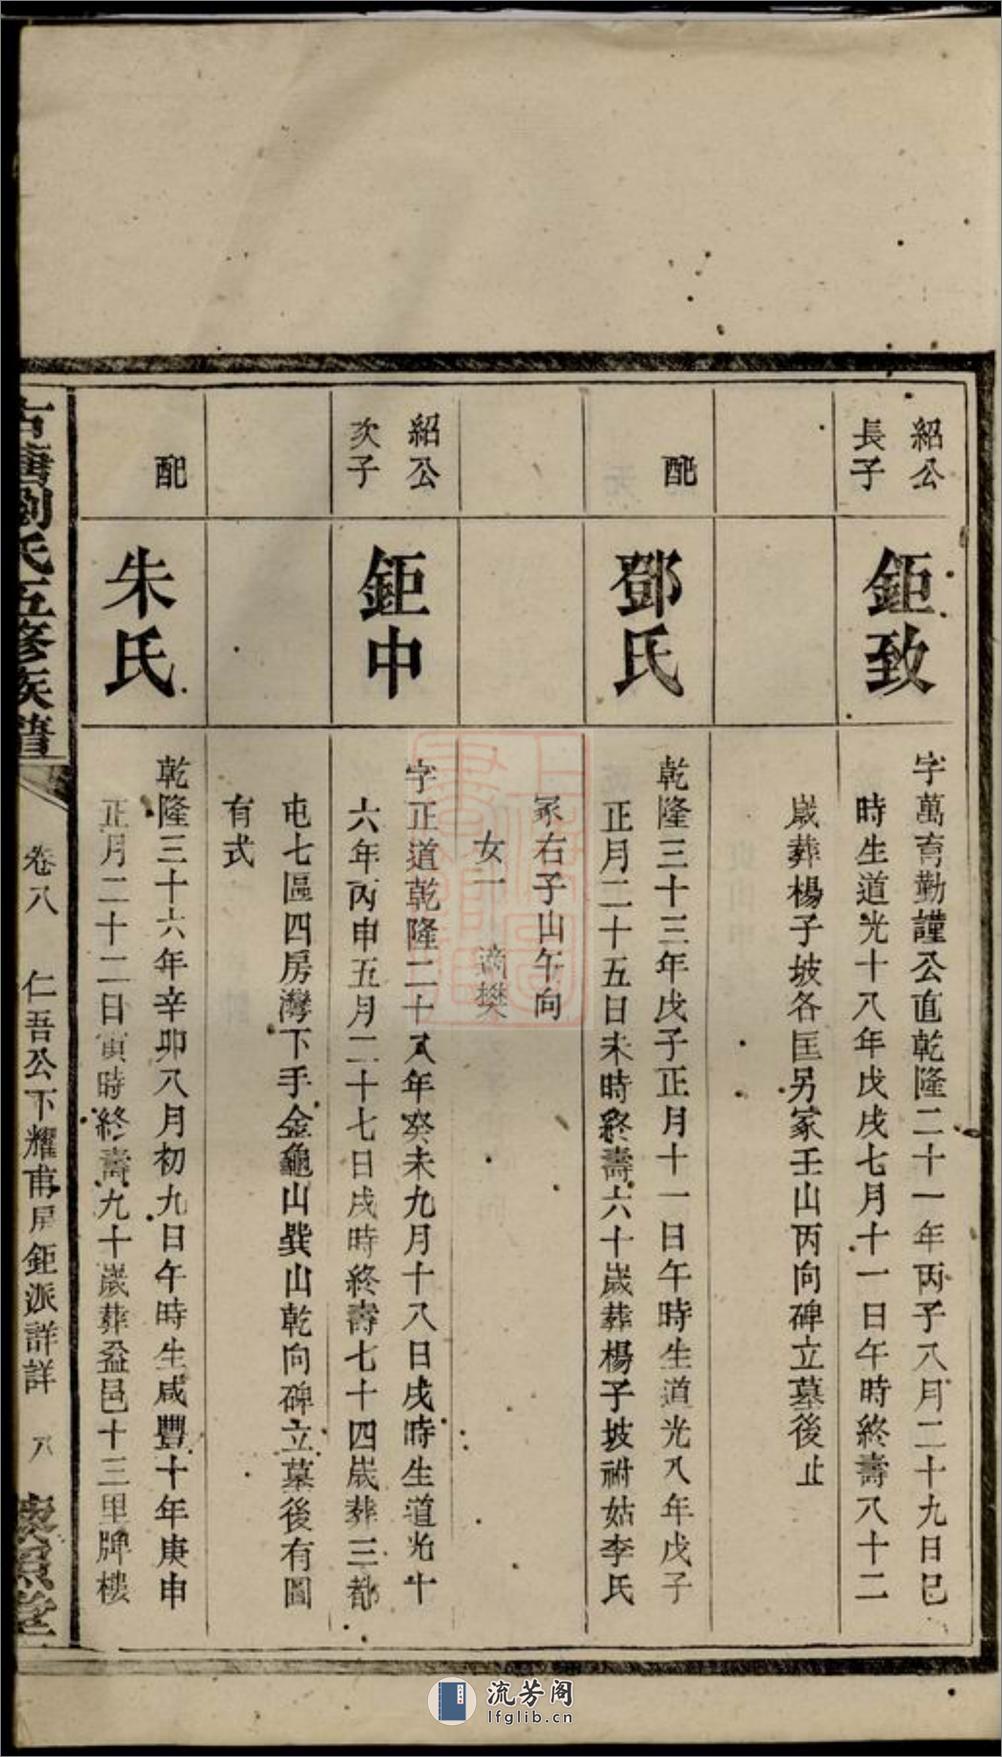 紹公
長子
鉅致
字萬育勤謹公直乾隆二十一年丙子八月二十九日巳
時生道光十八年戊戌七月十一日午時終壽八十二
歲葬楊子坡各匡另冢壬山丙向碑立墓後止
配
鄧氏
乾隆三十三年戊子正月十一日午時生道光八年戊子
正月二十五日未時終壽六十歲葬楊子坡祔姑李氏
冢右子山午向
女一 適樊
紹公
次子
鉅中
字正道乾隆二十八年癸未九月十八日戌時生道光十
六年丙申五月二十七日戌時終壽七十四歲葬三都
屯七區四房灣下手金龜山巽山乾向碑立墓後有圖
有式
配
朱氏
乾隆三十六年辛卯八月初九日午時生咸豐十年庚申
正月二十二日寅時終壽九十歲葬益邑十三里牌樓
古塘劉氏五修族譜
卷八 仁吾公下耀甫房鉅派詳詳 八
流芳阁
lfglib.cn